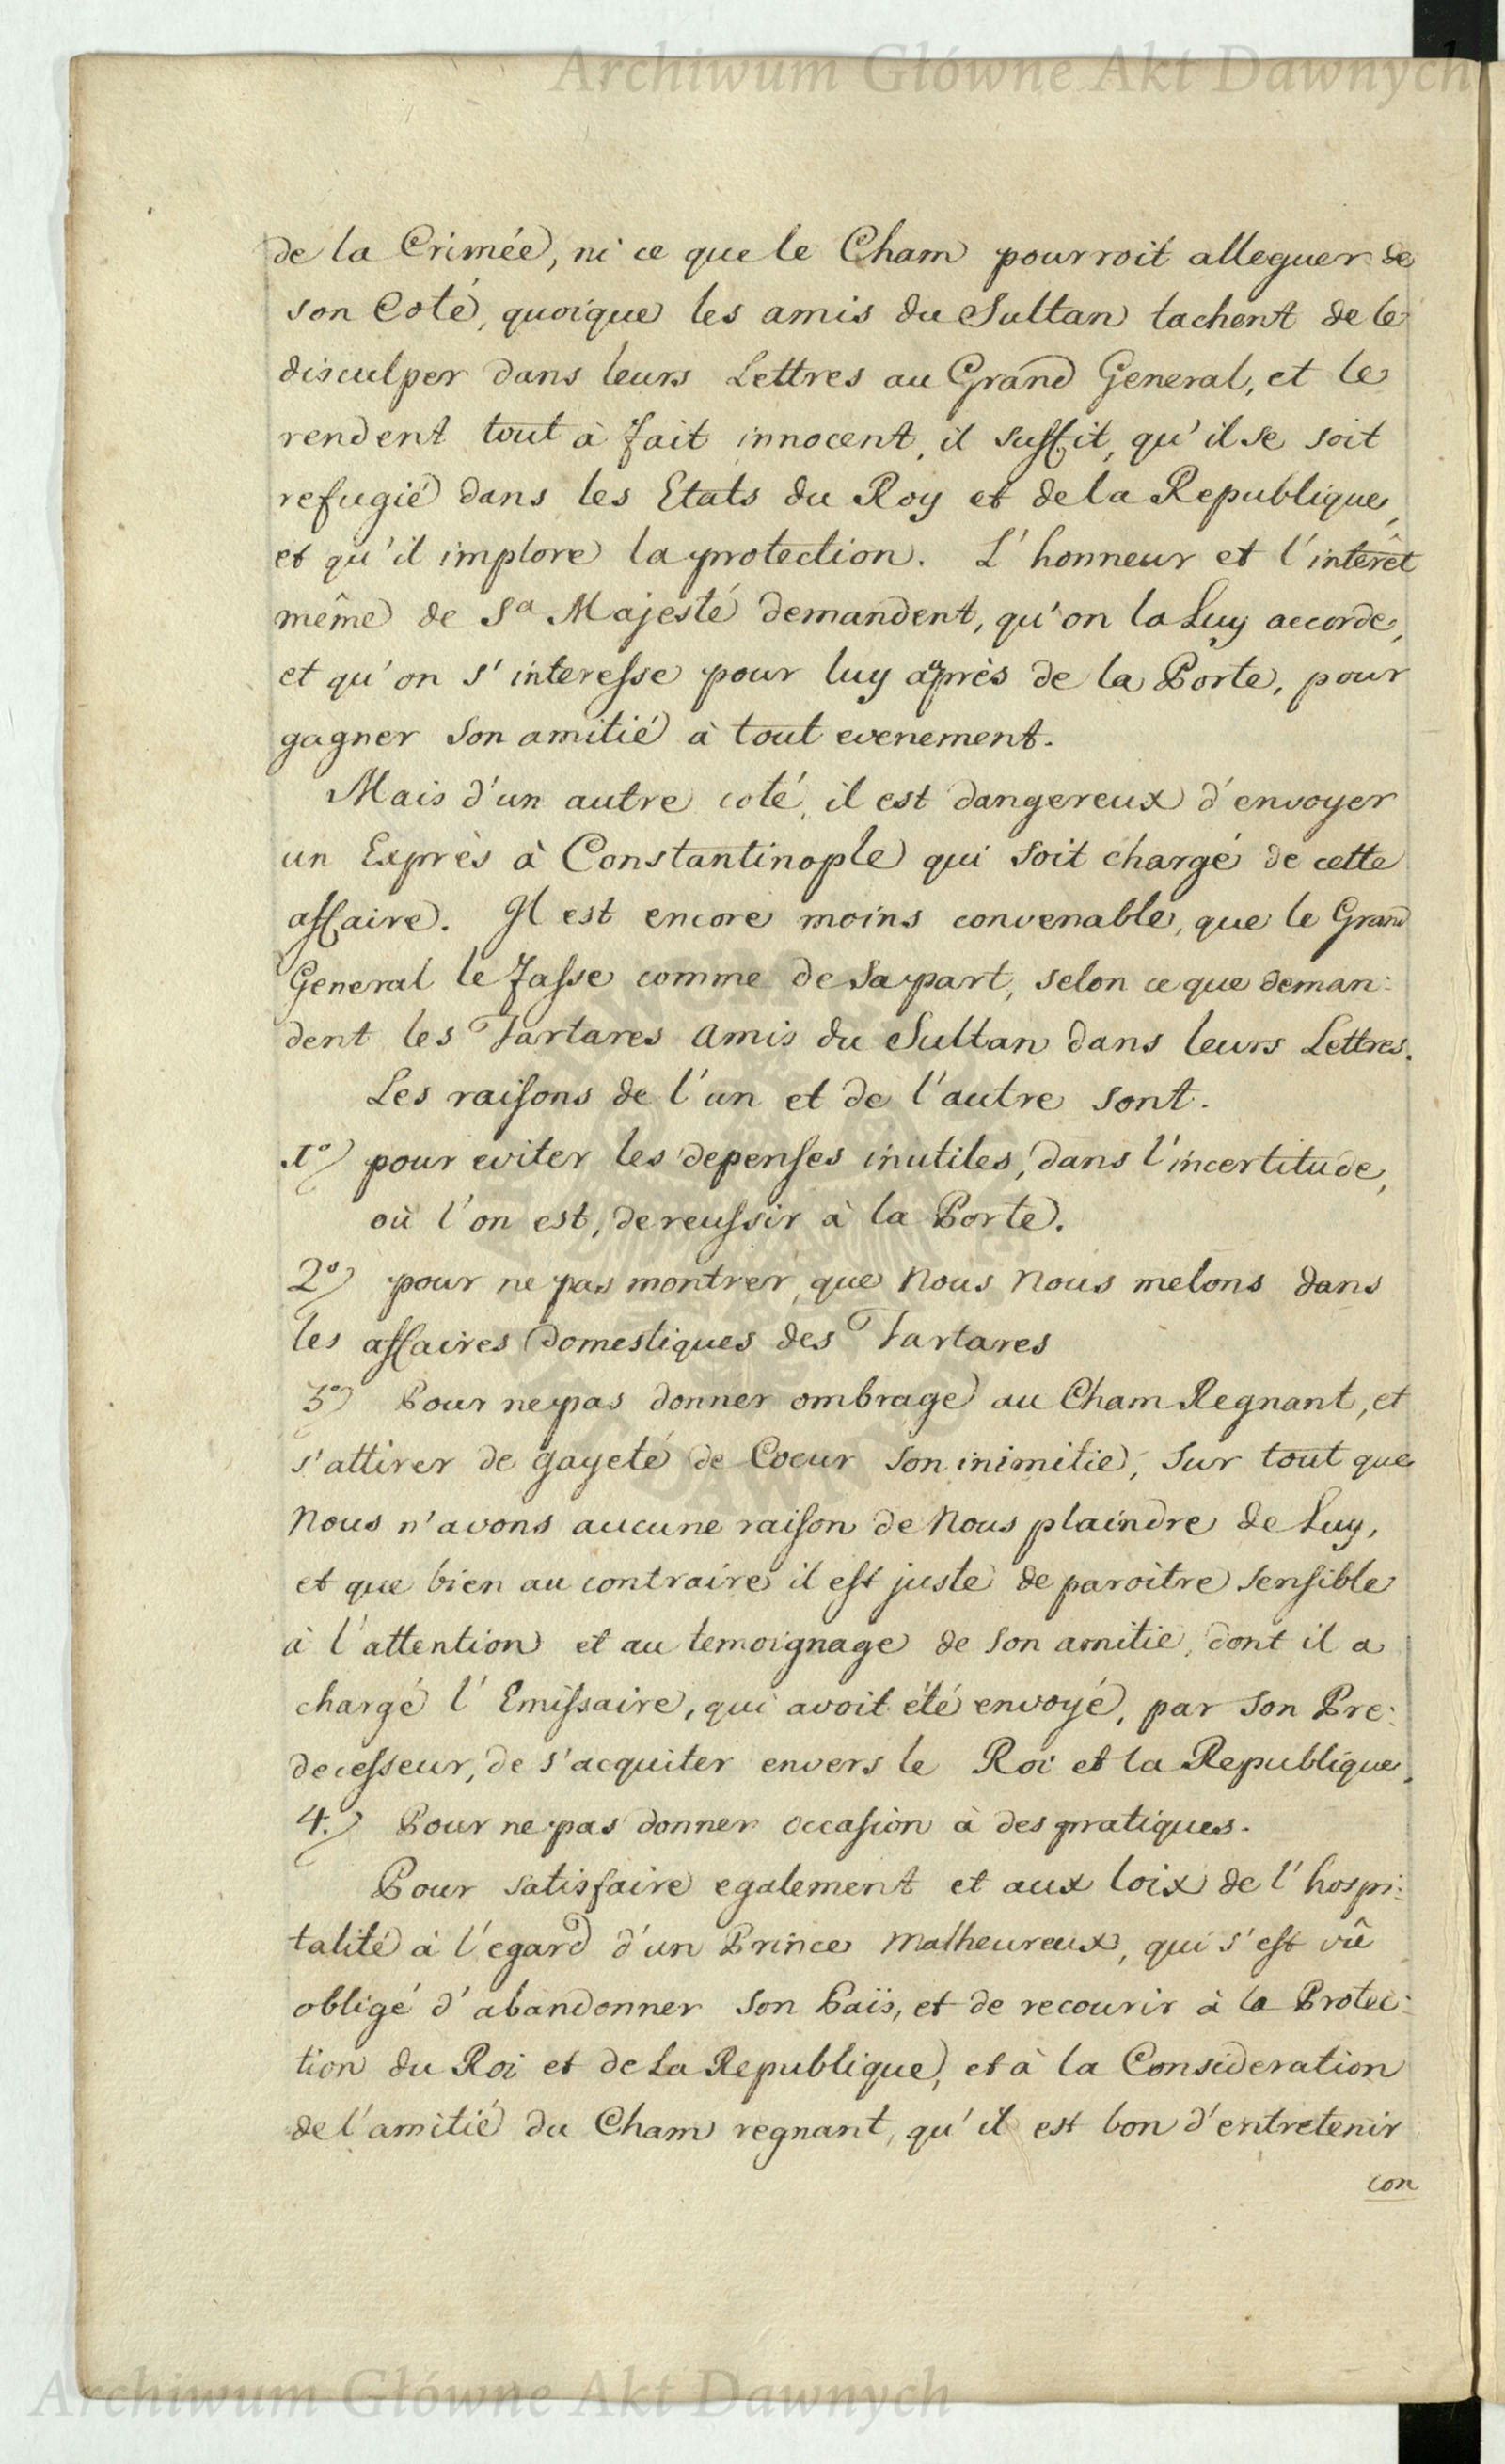 Archiwum Główne Akt Dawnych
de la Crimée, ni ce que le Cham pourroit alleguer de
son Coté, quoique les amis du Sultan tachent de le
disculper dans leurs Lettres au Grand General, et le
rendent tout à fait innocent, il suffit, qu'il se soit
refugié dans les Etats du Roy et de la Republique,
et qu'il implore la protection. L'honneur et l'interêt
même de Sa Majesté demandent, qu'on la Luy accorde,
et qu'on s'interesse pour luy après de la Porte, pour
gagner Son amitié à tout evenement.
Mais d'un autre coté, il est dangereux d'envoyer
un Exprès à Constantinople qui soit chargé de cette
affaire. Il est encore moins convenable, que le Grand
General le fasse comme de Sa part, selon ce que deman:
dent les Tartares Amis du Sultan dans leurs Lettres.
Les raisons de l'un et de l'autre sont.
1º) pour eviter les depenses inutiles, dans l'incertitude,
où l'on est, de reussir à la Porte.
2º) pour ne pas montrer, que Nous Nous melons dans
les affaires Domestiques des Tartares
3º) Pour ne pas donner ombrage au Cham Regnant, et
s'attirer de gayeté de Coeur Son inimitié, Sur tout que
Nous n'avons aucune raison de Nous plaindre de Luy,
et que bien au contraire il est juste de paroitre Sensible
à l'attention et au temoignage de Son amitié, dont il a
chargé l'Emissaire, qui avoit été envoyé, par Son Pre:
decesseur, de s'acquiter envers le Roi et la Republique.
4.) Pour ne pas donner occasion à des pratiques.
Pour satisfaire egalement et aux loix de l'hospi:
talité à l'egard d'un Prince Malheureux, qui s'est vû
obligé d'abandonner Son Païs, et de recourir à la Protec:
tion du Roi et de La Republique, et à la Consideration
de l'amitié du Cham regnant, qu'il est bon d'entretenir
con
Archiwum Główne Akt Dawnych